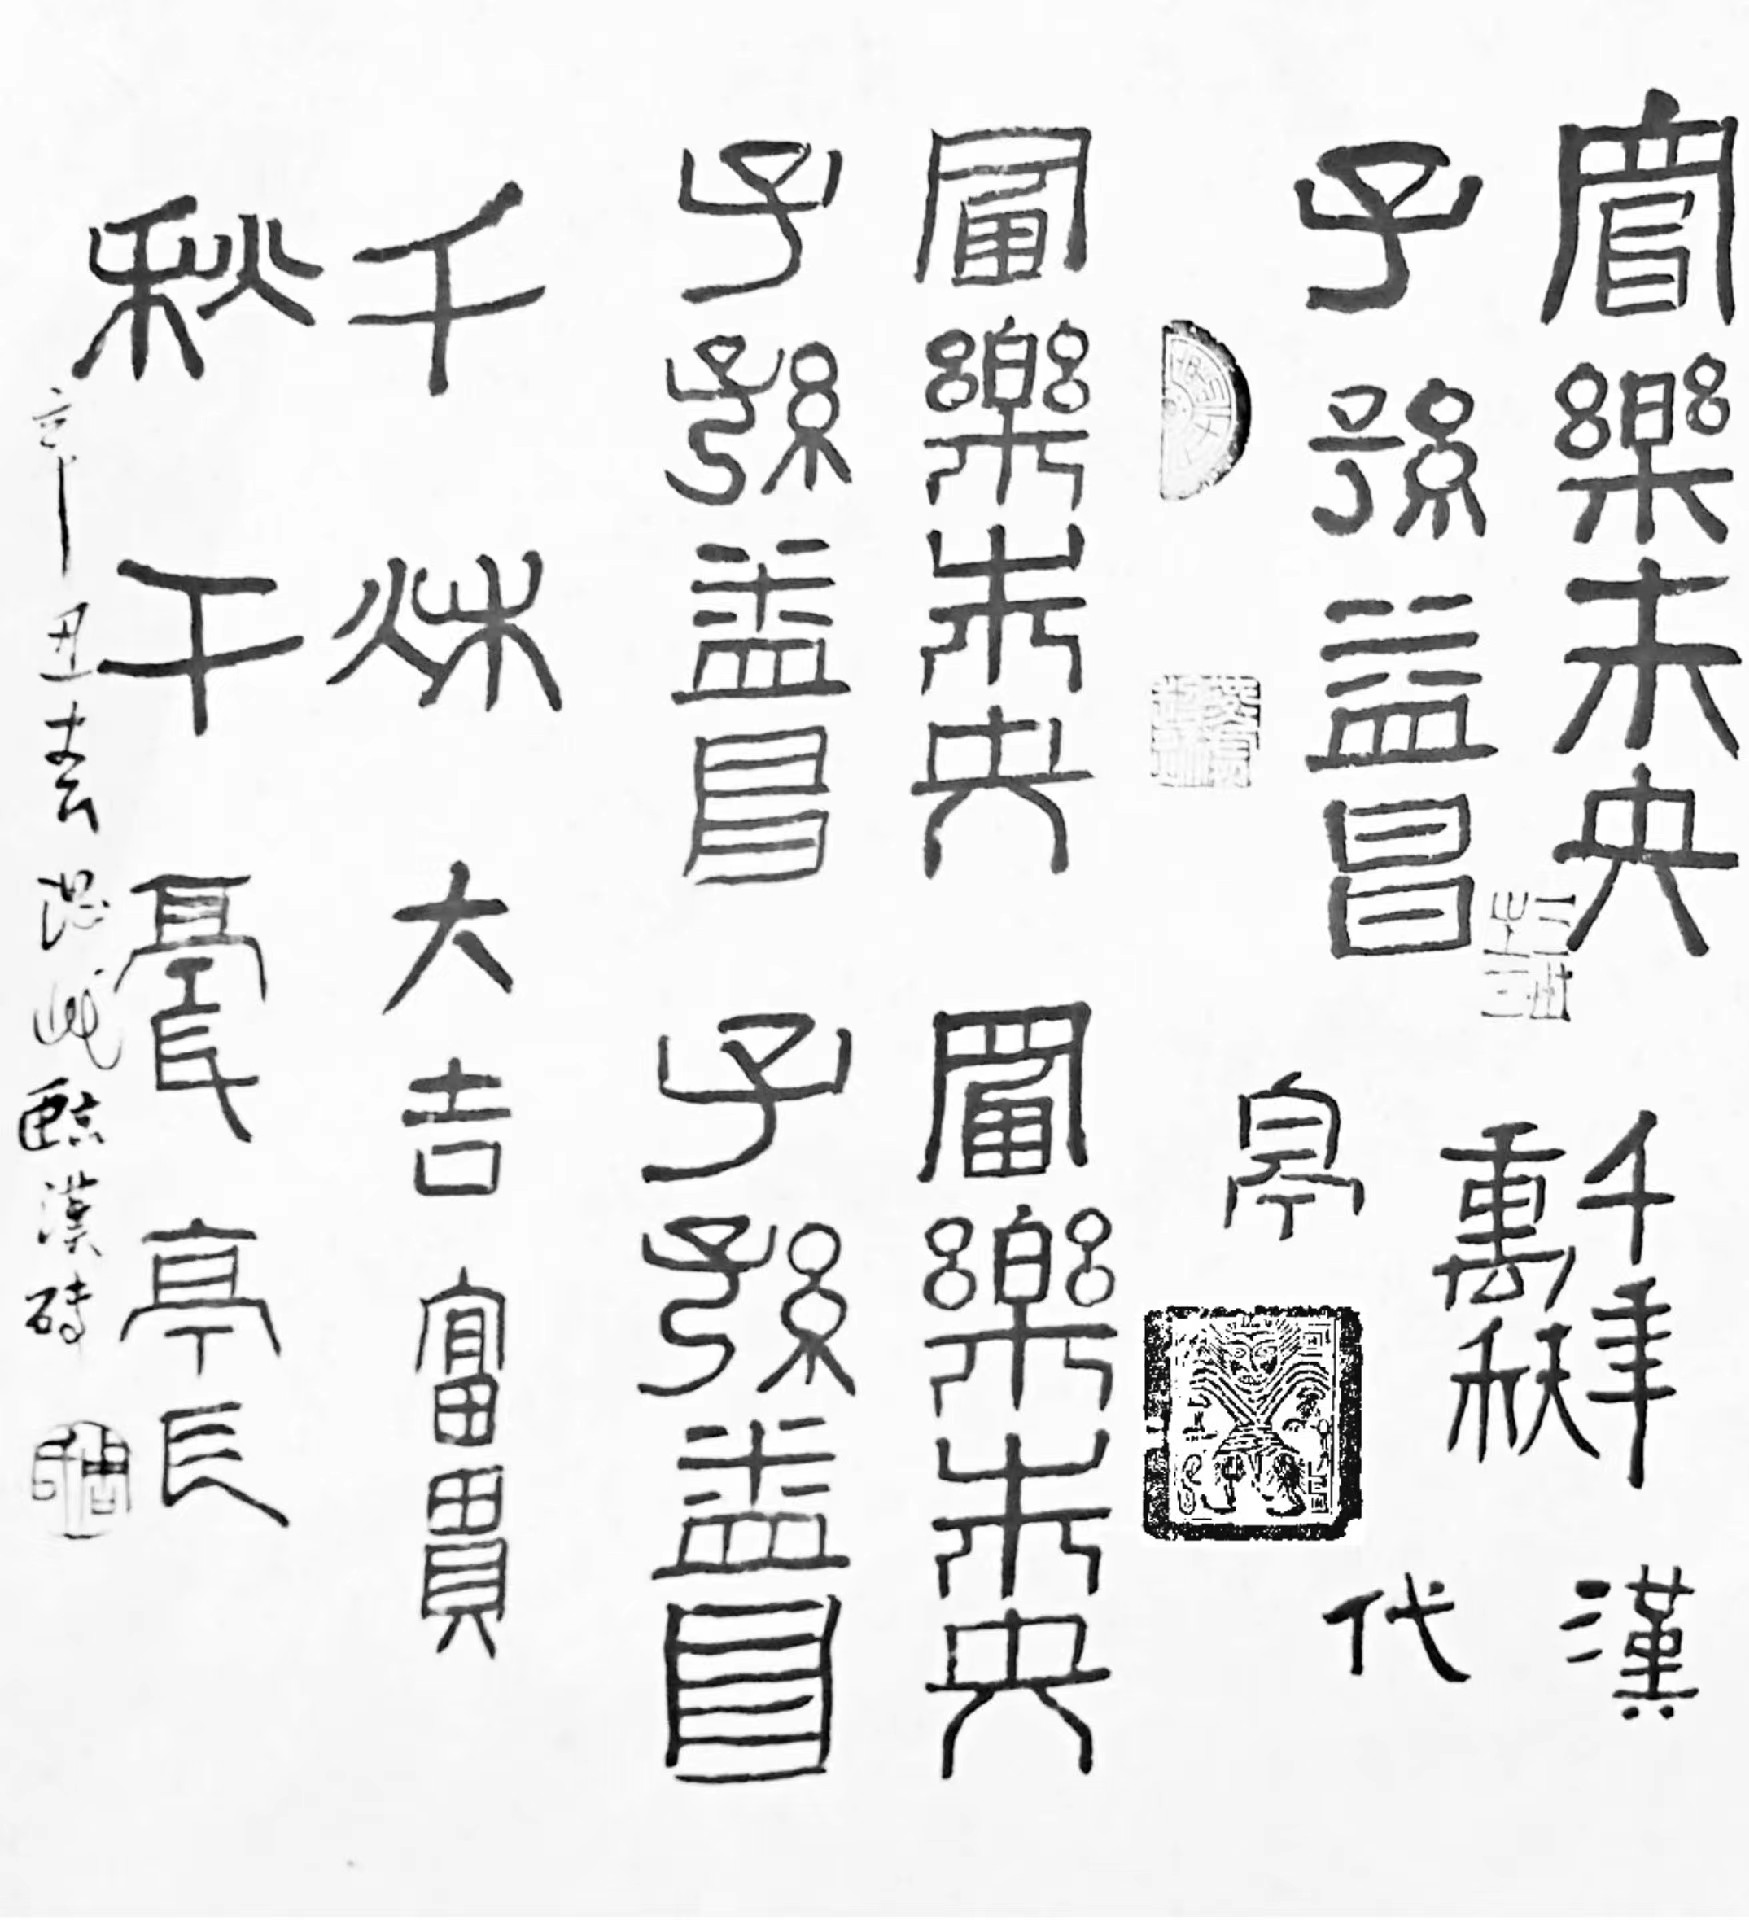 富樂未央
子孫益昌
千年
萬秋
亭
漢
代
富樂未央
子孫益昌
富樂未央
子孫益昌
千秋大吉富貴
秋千亭長亭長
辛丑春
臨漢磚